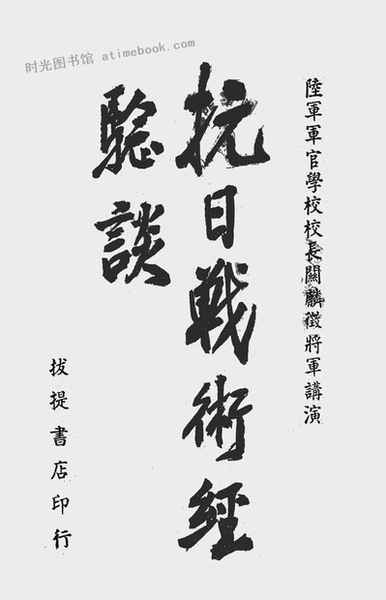 时光图书馆 atimebook.com
陸軍軍官學校校長關麟徵將軍講演
抗日戰術經
驗談
拔提書店印行